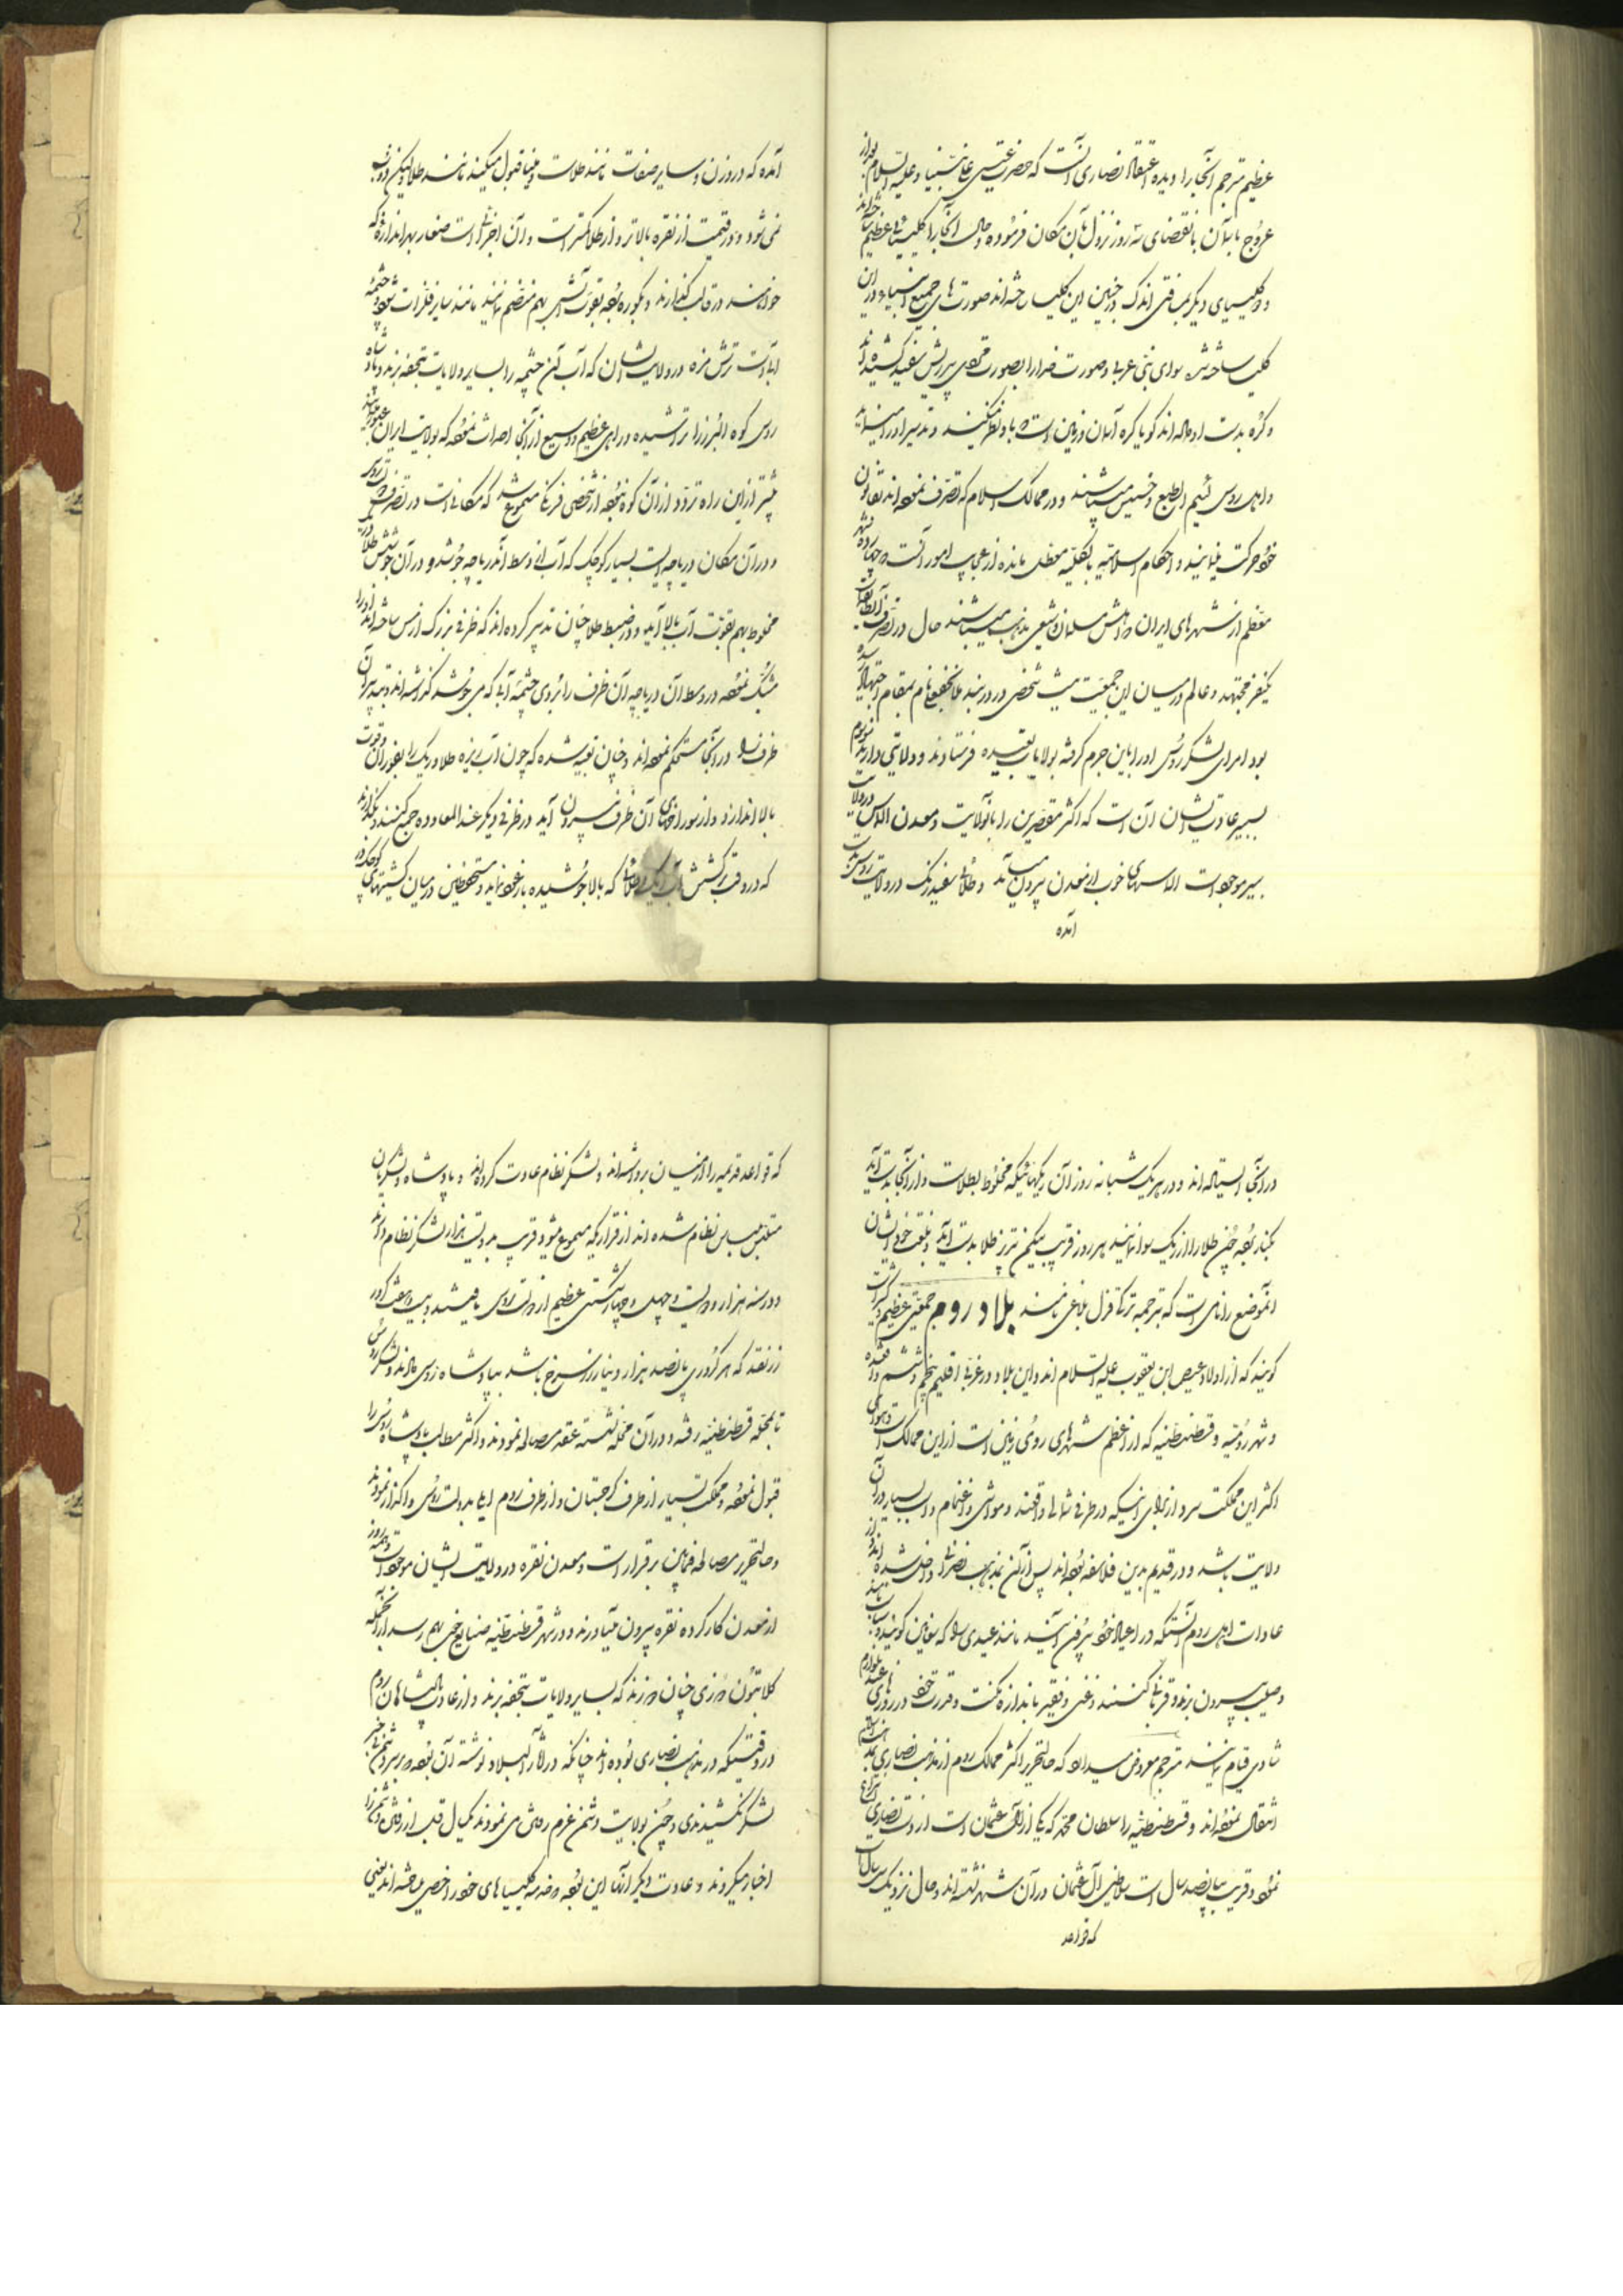 عظیم مترجم آنجا را دیده اعتقاد نصاری آنست که حضرت عیسی علی نبینا و علیه السلام بعد از
عروج بآسمان بانقضای سه روز نزول بآن مکان فرموده و حال آنجا را کلیسیای عظیم ساخته‌اند
و کلیسیای دیگر بمسافتی اندک در جنب این کلیسا ساخته‌اند صورت‌های جمیع انبیا در آن
کلیسا ساخته شده سوای نبی عربی و صورت خدا را بصورت مردی پیر ریش سفید کشیده‌اند
و کره بدست او داده‌اند که گویا کره آسمان و زمین است و باو نظر میکند و تدبیر او را مینماید
و اهل روس لئیم الطبع و خسیس میباشند و در ممالک اسلام که تصرف نموده‌اند بقانون
خود حرکت مینمایند و احکام اسلامیه بالکلیه معطل مانده از عجایب امور آنست که چهارده شهر
معظم از شهرهای ایران که اهلش مسلمان و شیعی مذهب میباشند حال در تصرف آن طایفه است
یکنفر مجتهد و عالم در میان این جمعیت نیست شخصی در دربند ملا نجفعلی نام بمقام اجتهاد رسیده
بود امرای لشکر روس او را باین جرم گرفته بولایات بعیده فرستادند و ولایتی دارند موسوم
بسیبیر عادت ایشان آن است که اکثر مقصرین را بآنولایت و معدن الماس در ولایت
سیبیر موجود است الماسهای خوب از معدن بیرون میآید و طلای سفید رنگ در ولایت روس بدست
آمده
آمده که در وزن و سایر صفات مانند طلاست و مینا قبول میکند مانند طلا و لیکن ذوب
نمی‌شود و در قیمت از نقره بالاتر و از طلا کمتر است و آن اجزائی است صغار بهر اندازه که
خواهند در قالب گذارند و بکوره برده بقوت آتش بهم منضم نمایند مانند سایر فلزات شود و چشمه
آبی است ترش مزه در ولایت ایشان که آب آن چشمه را بسایر ولایات بتحفه برند و پادشاه
روس کوه البرز را تراشیده و راهی عظیم و وسیع از آنجا احداث نموده که بولایت ایران عبور نمایند
پیشتر از این راه تردد از آن کوه نبوده از شخصی فرنگی مسموع شد که مکانی است در تصرف روس
و در آن مکان دریاچه ایست بسیار کوچک که آب از وسط آن دریاچه جوشد و در آن جوشش طلا و ریگ
مخلوط بهم بقوت آب بالا آید و در ضبط طلا چنان تدبیر کرده‌اند که ظرفی بزرگ از مس ساخته‌اند و او را
مشبک نموده در وسط آن دریاچه آن ظرف را بروی چشمه آبی که می‌جوشد گذاشته‌اند و بتدبیر آن
ظرف را در آنجا مستحکم نموده‌اند و چنان تعبیه شده که چون آب ریزه طلا و ریگ را بفوران و قوت
بالا اندازد و از سوراخهای آن ظرف بیرون آید در ظرفی دیگر عند المعاوده جمع کنند و نگذارند
که در وقت برگشتن آب ریگ و طلائی که بالا جوشیده باز عود نماید و مستحفظین در میان کشتیهای کوچک در
در آنجا ایستاده‌اند و در هر یک شبانه روز آن ریگهائیکه مخلوط بطلاست و از آنجا بدست آید
بکنار برده چون طلا را از ریگ سوا نمایند هر روز قریب بیکمن تبریز طلا بدست آید و بلغت خود ایشان
آنموضع را نامی است که بترجمه ترکی قزل بلاغی نامند بلاد روم جمعیتی عظیم و کثرت
گویند که از اولاد عیص ابن یعقوب علیه السلام‌اند و این بلاد در غربی اقلیم پنجم و ششم واقع شده
و شهر رومیه و قسطنطنیه که از اعظم شهرهای روی زمین است از این ممالک است و هوای
اکثر این مملکت سرد از برای اینکه در طرف شمالی واقعند و مواشی و اغنام و اسب بسیار در آن
ولایت باشد و در قدیم بدین فلاسفه بوده‌اند پس از آن بمذهب نصرانی داخل شده‌اند و از
عادات اهل روم آنستکه در اعیاد خود بیرون آیند مانند عیدی را که سعانین گویند
و صلیب بیرون برند و قربانی کنند و غنی و فقیر باندازه مکنت و قدرت خود در روزهای عید بلوازم
شادی قیام نمایند مترجم معروض میدارد که حالتحریر اکثر ممالک روم از مذهب نصاری بمذهب اسلام
انتقال نموده‌اند و قسطنطنیه را سلطان محمد که یکی از آل عثمان است از دست نصاری انتزاع
نمود و قریب بپانصد سال است سلاطین آل عثمان در آن شهر نشسته‌اند و حال نزدیک سالهاست
که قواعد
که قواعد قدیمه را از میان برداشته‌اند و لشکر نظام عادت کرده‌اند و پادشاه و لشکریان
متلبس بلباس نظام شده‌اند از قراریکه مسموع میشود قریب بدویست هزار لشکر نظام دارند
و در سنه هزار و دویست و چهل و چهار شکستی عظیم از دولت روس یافتند و بیست و هفت کرور
زر نقد که هر کروری پانصد هزار دینار زر سرخ باشد بپادشاه روس دادند و لشکر روس
تا بمحله قسطنطنیه رفته و در آن محله نشسته عقد مصالحه نمودند و اکثر مطالب پادشاه روس را
قبول نموده و مملکت بسیار از طرف گرجستان و از طرف روم ایلی بدولت روس واگذار نمودند
و حالتحریر مصالحه فیمابین برقرار است و معدن نقره در ولایت ایشان موجود است و همه روز
از معدن کار کرده نقره بیرون میآورند و در شهر قسطنطنیه صنایع خوب بهم رسد از آنجمله
کلابتون دوزی چنان دوزند که بسایر ولایات بتحفه برند و از عادات پادشاهان روم
در وقتیکه در مذهب نصاری بوده‌اند چنانکه در آثار البلاد نوشته آن بوده که بر سر دشمن بی‌خبر
لشکر نکشیدندی و چون بولایت دشمن عزم رفتن می‌نمودند یکسال قبل از رفتن دشمن را
اخبار میکردند و عادت دیگر آنها این بوده که خدمه کلیسیاهای خود را خصی میکرده‌اند یعنی